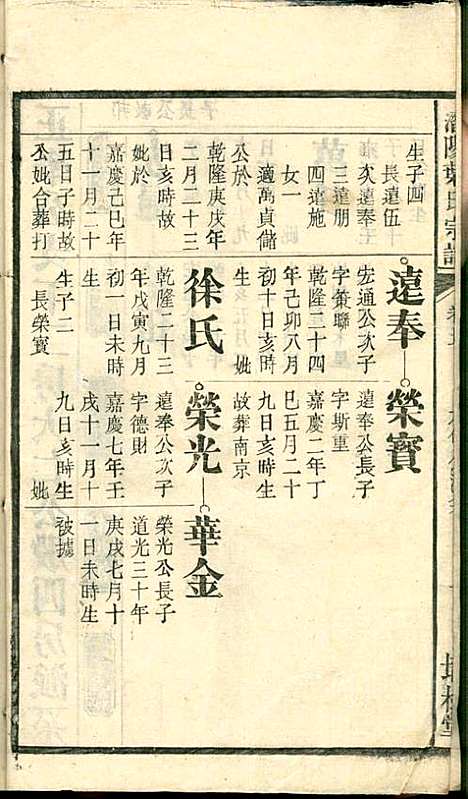 陽葉氏宗譜
生子四
長遠伍
次遠奉
三遠朋
四遠施
女一
適萬貞儲
公於
乾隆庚戌年
二月二十三
日亥時故
妣於
嘉慶己巳年
十一月二十
五日子時故
公妣合葬打
遠奉
宏通公次子
字策聯
乾隆二十四
年己卯八月
初十日亥時
妣
徐氏
乾隆二十三
年戊寅九月
初一日未時
生
生子二
長榮寶
榮寶
遠奉公長子
字斯重
嘉慶二年丁
巳五月二十
九日亥時生
故葬南京
榮光
遠奉公次子
字德財
嘉慶七年壬
戌十一月十
九日亥時生
妣
華金
榮光公長子
道光三十年
庚戌七月十
一日未時生
被擄